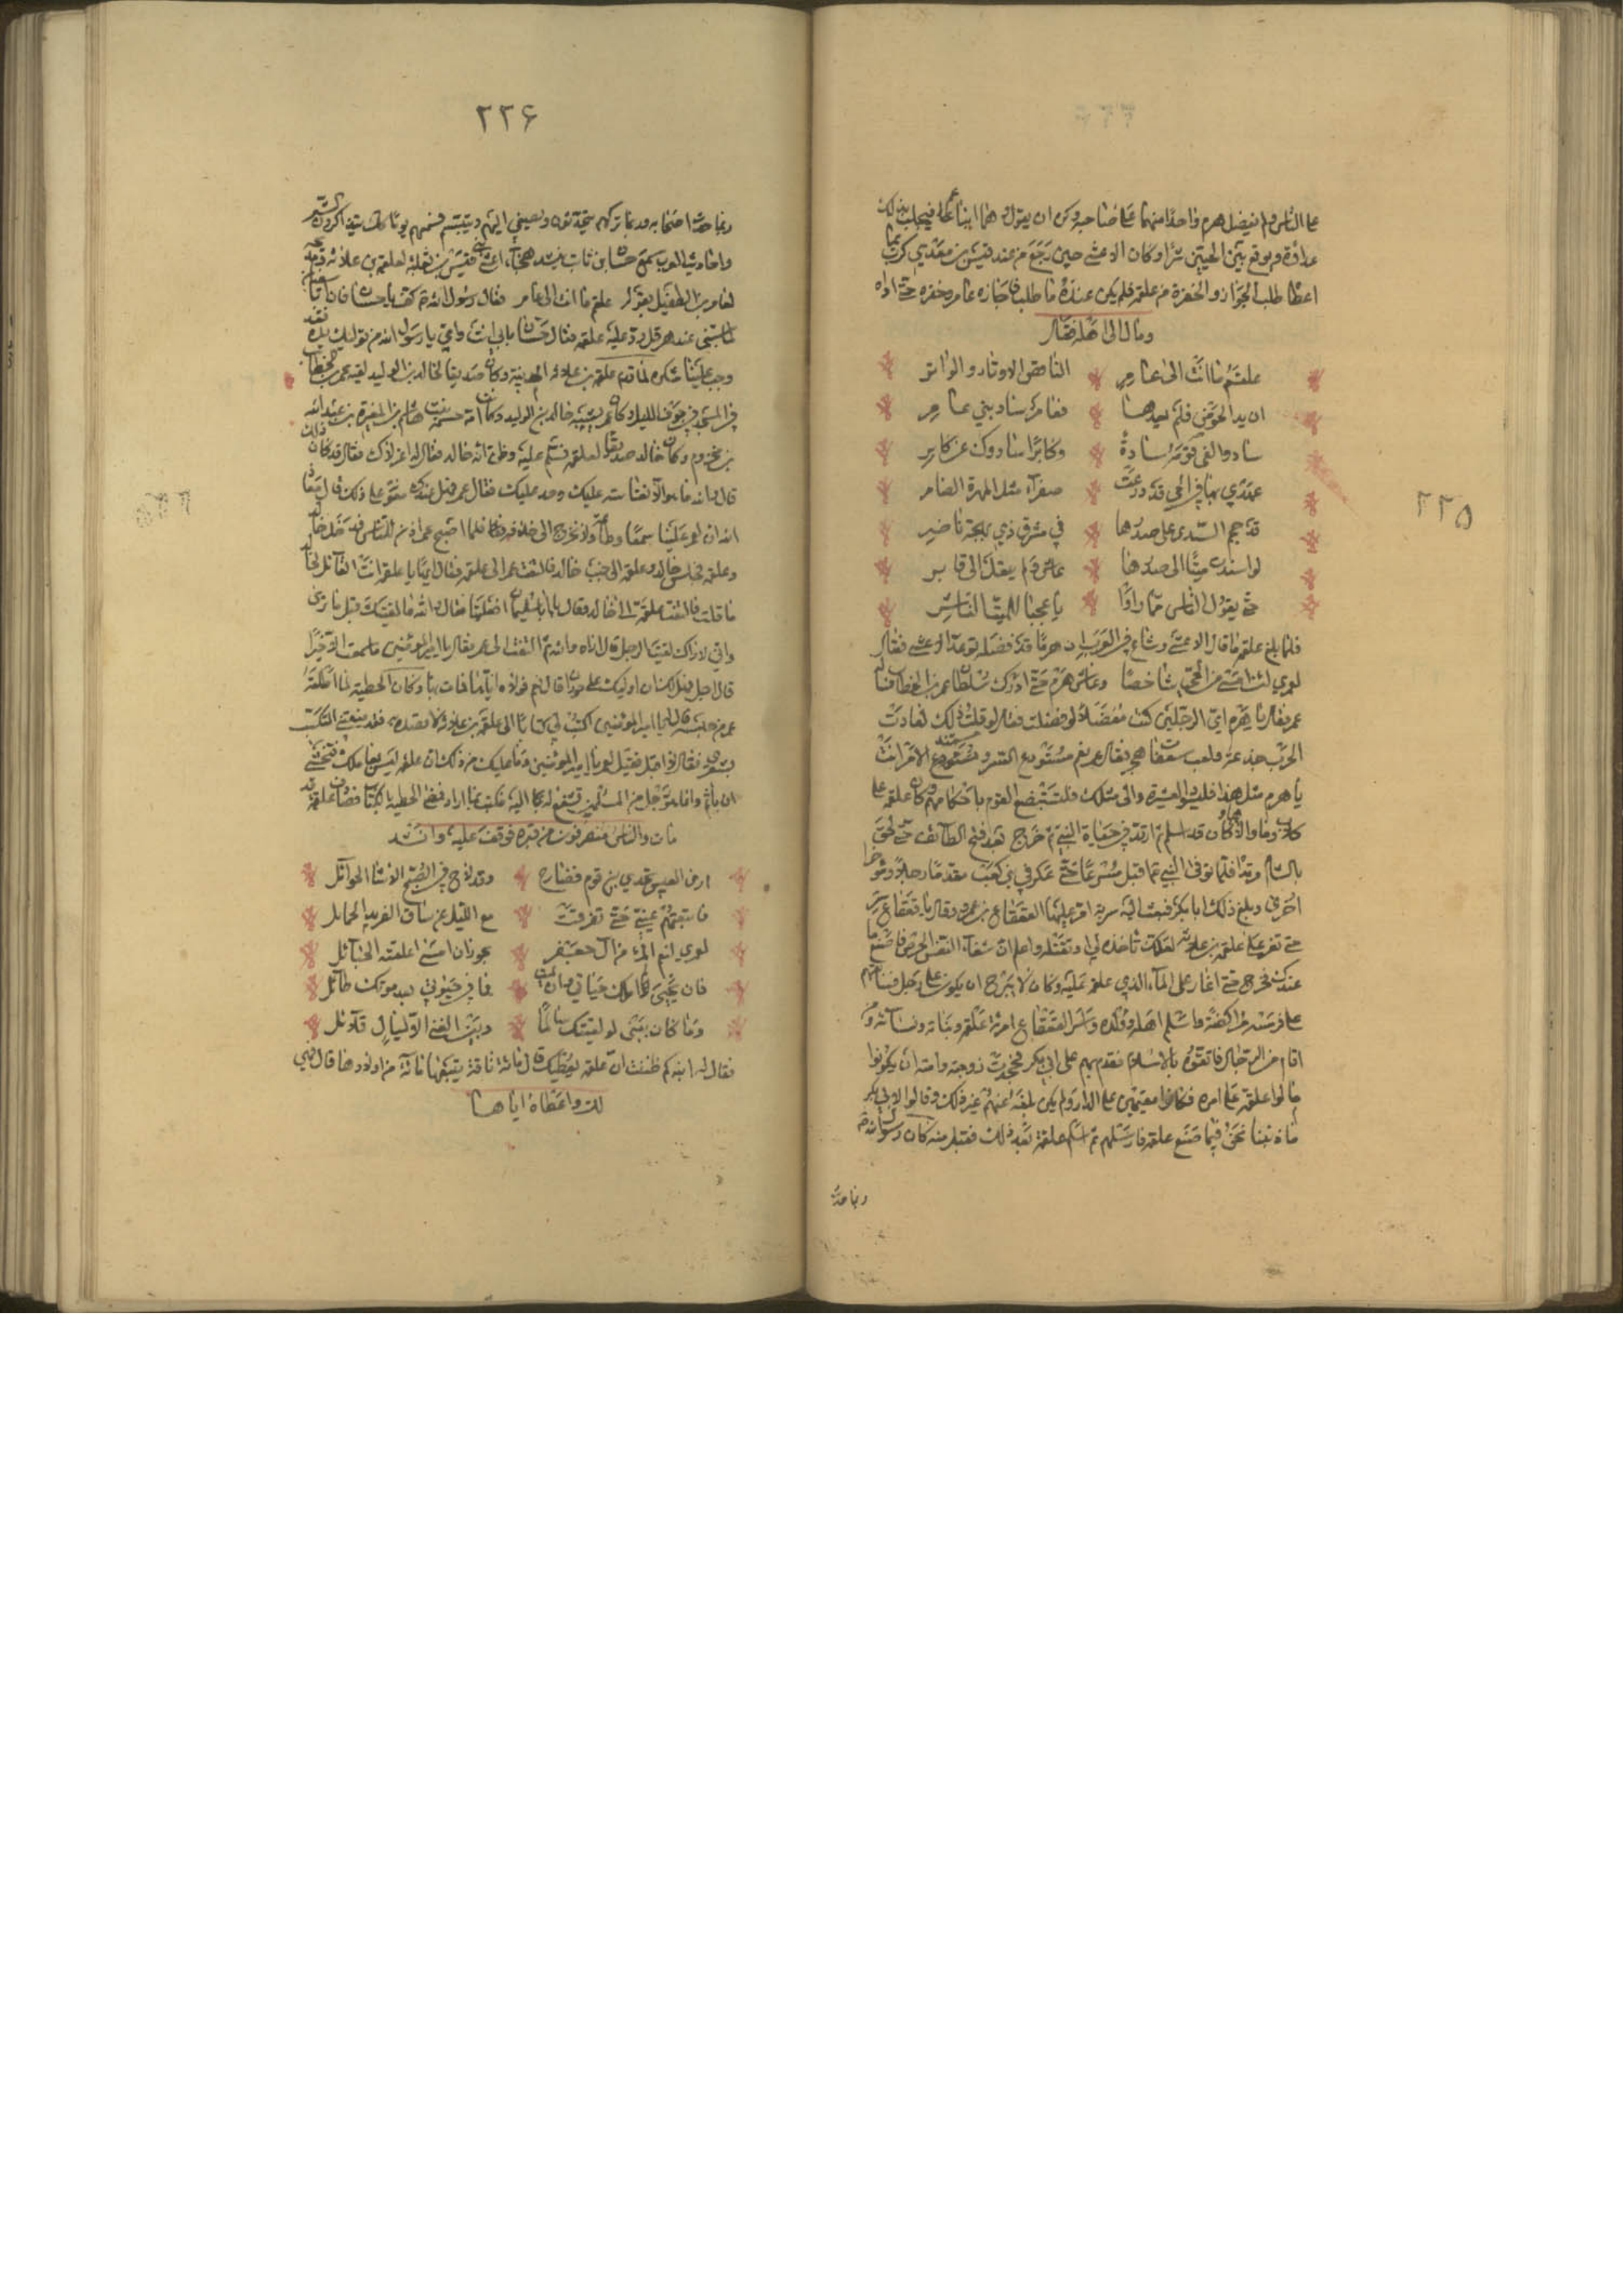 ٢٢٥
على الناس ولم يفضل هرم واحدا منهما على صاحبه وكره ان يقول هما ابنا عم فيجلب بذلك
عداوة ويوقع بين الحيين شرا وكان الاعشى حين رجع من عند قيس بن معدي كرب بما
اعطاه طلب الجوار والخفرة من علقمه فلم يكن عنده ما طلب فاجازه عامر وخفره حتى اداه
ومال الى اهله فقال
علقم ما انت الى عامر الناقض الاوتار والواتر
ان يسد الحوض فلم يعدهم فعامر ساد بني عامر
ساد والفى قومه سادة وكابرا سادوك عن كابر
عهدي بها في الحي قد درعت صفراء مثل المهرة الضامر
قد حجم الثدي على صدرها في مشرق ذي بهجة ناضر
لو اسندت ميتا الى صدرها عاش ولم ينقل الى قابر
حتى يقول الناس مما راوا يا عجبا للميت الناشر
فلما بلغ علقمه ما قال الاعشى وشاع في العرب ان هرما قد فضله توعد الاعشى فقال
لعمري لئن امسى من الحي شاخصا وعاش هرم حتى ادرك سلطان عمر بن الخطاب فساله
عمر فقال يا هرم اي الرجلين كنت مفضلا لو فضلت فقال لو قلت ذلك لعادت
الحرب جذعة وبلغت سعفات هجر فقال عمر نعم مستودع السر ومسند الامر انت
يا هرم مثل هذا فليسد العشيرة والى مثلك فليستبضع القوم باحكامهم وكان علقمه على
كان قد اسلم ثم ارتد في حياة النبي ثم خرج بعد فتح الطائف حتى لحق
بالشام مرتدا فلما توفى النبي ع اقبل مسرعا حتى عسكر في بني كعب مقدما رجلا وموخرا
اخرى وبلغ ذلك ابا بكر فبعث اليه سرية امر عليها القعقاع بن عمرو وقال يا قعقاع سر
حتى تغير على علقمه بن علاثه لعلك تاخذه لي او تقتله واعلم ان شفاء النفس الحوص فاصنع ما
عندك فخرج حتى اغار على الماء الذي علقمه عليه وكان لا يبرح ان يكون على رجل فسابقهم
على فرسه مراكضة واسلم اهله وولده وانتسف القعقاع امراة علقمه وبناته ونساءه ومن
اقام من الرجال فاتقوه بالاسلام فقدم بهم على ابي بكر فجحدت زوجته وابنته ان يكونوا
مالوا علقمه على امره وكانوا مقيمين على الدار ولم يكن بلغه عنهم غير ذلك وقالوا لابي بكر
ما ذنبنا نحن فيما صنع علقمه فارسلهم ثم اسلم علقمه بعد ذلك فقبل منه كان رسول الله ص
ربما حدث
٢٢٦
ربما حدث اصحابه وربما تركهم يتحدثون ويصغي اليهم ويتبسم فبينهم يوما على ذلك يتذاكرون الشعر
واحاديث العرب سمع حسان بن ثابت ينشد هجاء اعشى بني قيس بن ثعلبه لعلقمه بن علاثه ومدحه
لعامر بن الطفيل بقوله علقم ما انت الى عامر فقال رسول الله ص كف يا حسان فان ابا سفيان
لما شعث مني عند هرقل رد عليه علقمه فقال حسان بابي انت وامي يا رسول الله من نولتك يده فقد
وجب علينا شكره لما قدم علقمه بن علاثه المدينه وكان صديقا لخالد بن الوليد لقيه عمر بن الخطاب
في المسجد في جوف الليل وكان عمر يشبه خالد بن الوليد وكانت امه حنتمه بنت هشام بن المغيرة بن عبدالله
بن مخزوم وكان خالد صديقا لعلقمه فسلم عليه وظن انه خالد فقال له اعزلوك فقال قد كان ذلك
قال والله ما هو الا نفاسة عليك وحسد عليك فقال عمر فهل عندك معونة على ذلك قال معاذ
الله ان لعمر علينا سمعا وطاعة ولا نخرج الى خلافه فلما اصبح عمر اذن للناس فدخل خالد
وعلقمه فجلس خالد وعلقمه الى جنب خالد فالتفت عمر الى علقمه فقال ايها يا علقمه انت القائل لخالد
ما قلت فالتفت علقمه الى خالد فقال يا ابا سليمان افعلتها فقال والله ما لقيتك قبل ما ترى
واني لاراك لقيت الرجل قال اراه والله ثم التفت الى عمر فقال يا امير المومنين ما سمعت الا خيرا
قال اجل فهل لك ان اوليك على حوران قال نعم فولاه اياها فمات بها وكان الحطيئه لما اطلقه
عمر من حبسه قال له يا امير المومنين اكتب لي كتابا الى علقمه بن علاثه لاقصده به فقد منعتني التكسب
بشعري فقال لا افعل فقيل له يا امير المومنين وما عليك من ذلك ان علقمه ليس بعاملك فتخشى
ان ياثم وانما هو رجل من المسلمين تشفع له بكتابك اليه فكتب بما اراد فمضى الحطيئه بالكتاب فصادف علقمه قد
مات والناس منصرفون من قبره فوقف عليه وانشد
ارى العيس تخدي بين قو فضارج وقد لاح في الصبح الاشا الحوامل
فاتبعتهم عيني حتى تفرقت مع الليل عن ساق الفريد الجمائل
لعمري لنعم المرء من آل جعفر بحوران امسى اعلقته الحبائل
فان تحي لا املل حياتي وان تمت فما في حيوتي بعد موتك طائل
وما كان بيني لو لقيتك سالما وبين الغنى الا ليال قلائل
فقال له ابنه كم ظننت ان علقمه يعطيك قال مائة ناقة يتبعها مائة من اولادها قال هي
لك واعطاه اياها